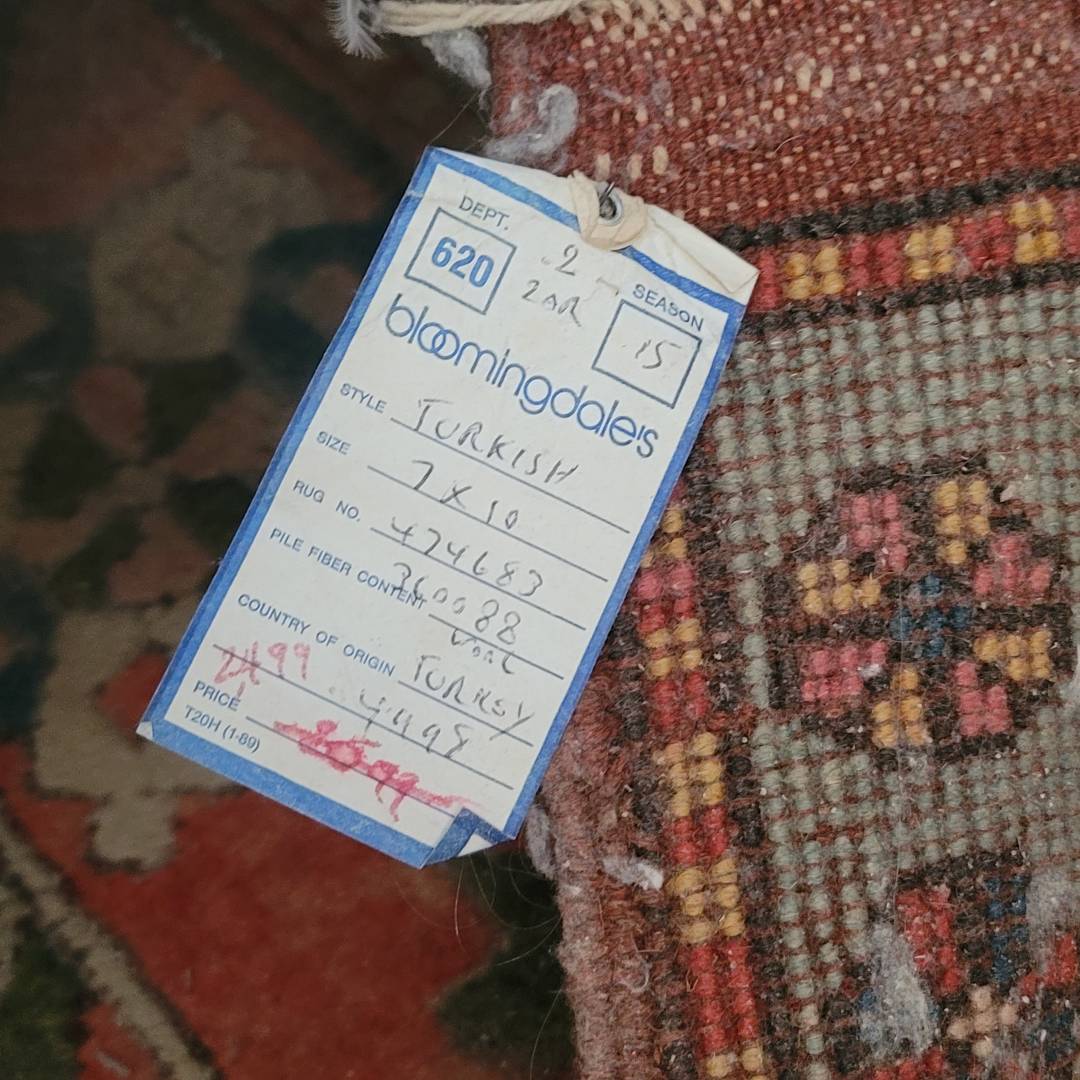 DEPT. 2
620 SEASON
15
bloomingdale's
STYLE TURKISH
SIZE 7 X 10
RUG NO. 474683
360088
PILE FIBER CONTENT WOOL
COUNTRY OF ORIGIN TURKEY
PRICE
T20H (1-89)